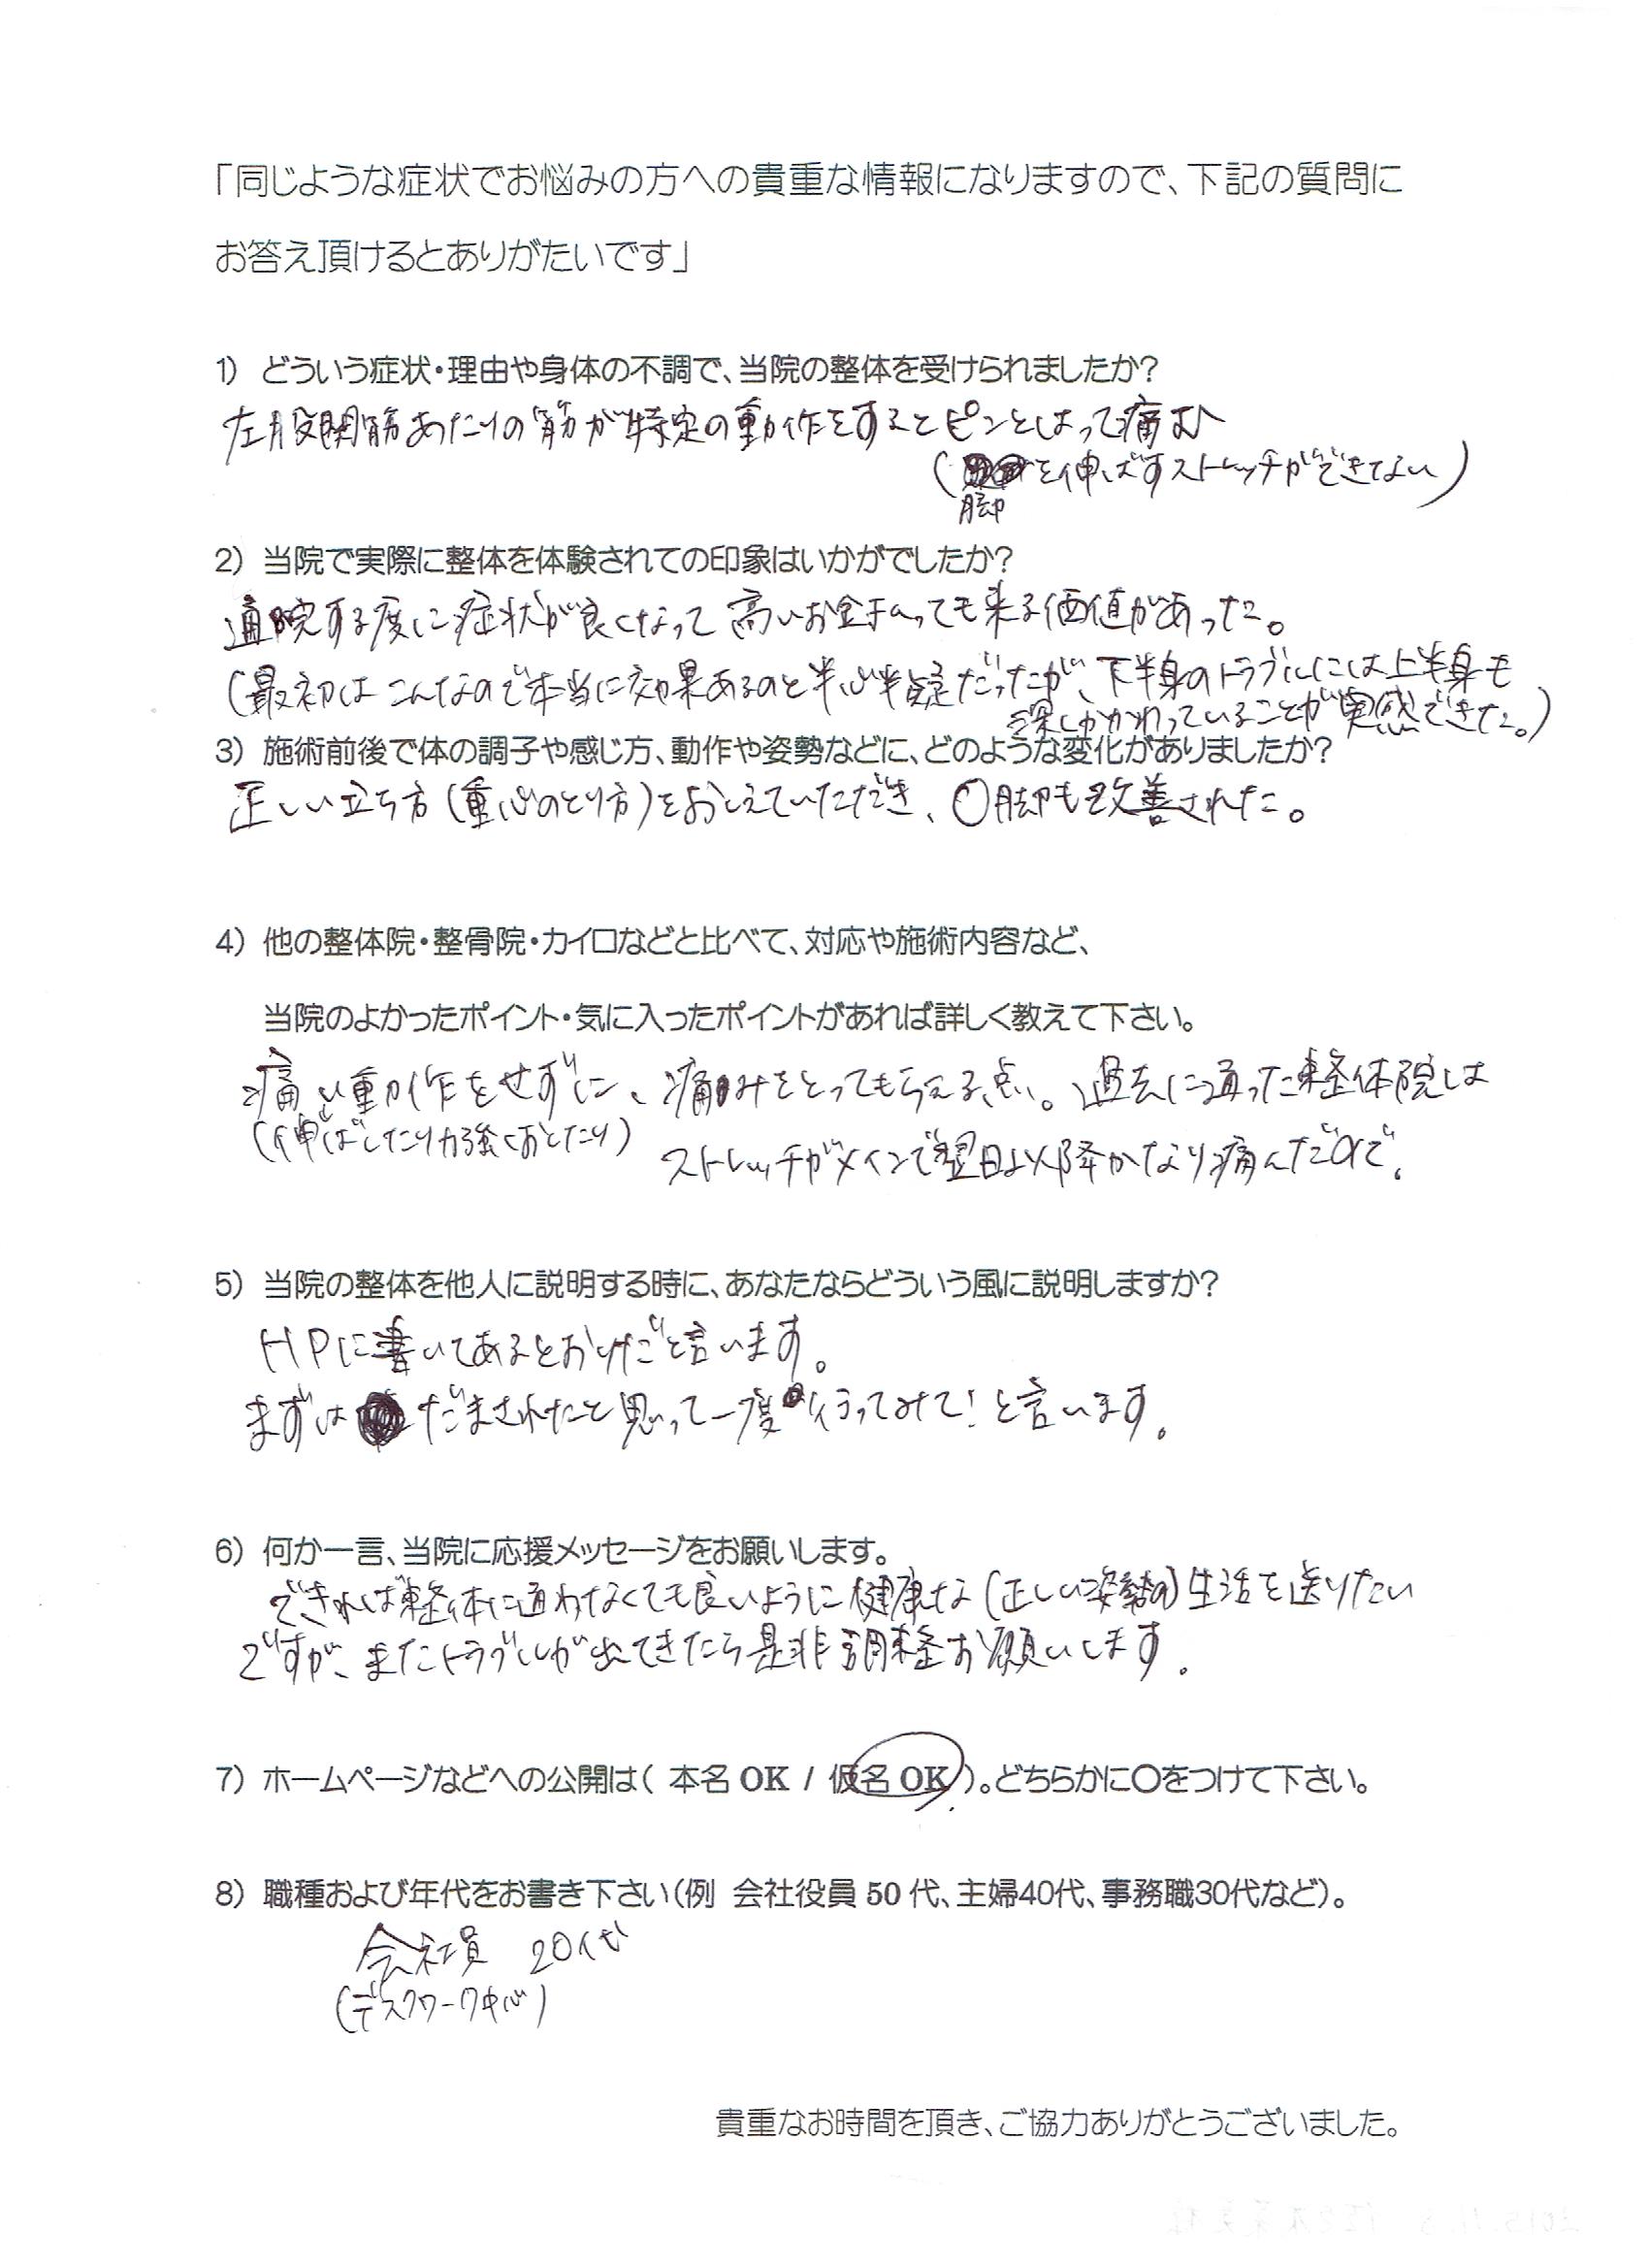 「同じような症状でお悩みの方への貴重な情報になりますので、下記の質問に
お答え頂けるとありがたいです」
1) どういう症状・理由や身体の不調で、当院の整体を受けられましたか?
左股関節あたりの筋が特定の動作をするとピンとはって痛む
(脚を伸ばすストレッチができてない)
2) 当院で実際に整体を体験されての印象はいかがでしたか?
通院する度に症状が良くなって高いお金払っても来る価値があった。
(最初はこんなので本当に効果あるのと半心半疑だったが、下半身のトラブルには上半身も
深くかかわっていることが実感できた。)
3) 施術前後で体の調子や感じ方、動作や姿勢などに、どのような変化がありましたか?
正しい立ち方(重心のとり方)をおしえていただき、〇脚も改善された。
4) 他の整体院・整骨院・カイロなどと比べて、対応や施術内容など、
当院のよかったポイント・気に入ったポイントがあれば詳しく教えて下さい。
痛い動作をせずに、痛みをとってもらえる点。過去に通った整体院は
(伸ばしたり力強くおしたり)
ストレッチがメインで翌日以降かなり痛んだので。
5) 当院の整体を他人に説明する時に、あなたならどういう風に説明しますか?
HPに書いてあるとおりだと言います。
まずはだまされたと思って一度行ってみて!と言います。
6) 何か一言、当院に応援メッセージをお願いします。
できれば整体に通わなくても良いように健康な(正しい姿勢の)生活を送りたい
ですが、またトラブルが出てきたら是非調整お願いします。
7) ホームページなどへの公開は( 本名 OK / 仮名 OK )。どちらかに〇をつけて下さい。
8) 職種および年代をお書き下さい(例 会社役員 50 代、主婦40代、事務職30代など)。
会社員 20代
(デスクワーク中心)
貴重なお時間を頂き、ご協力ありがとうございました。